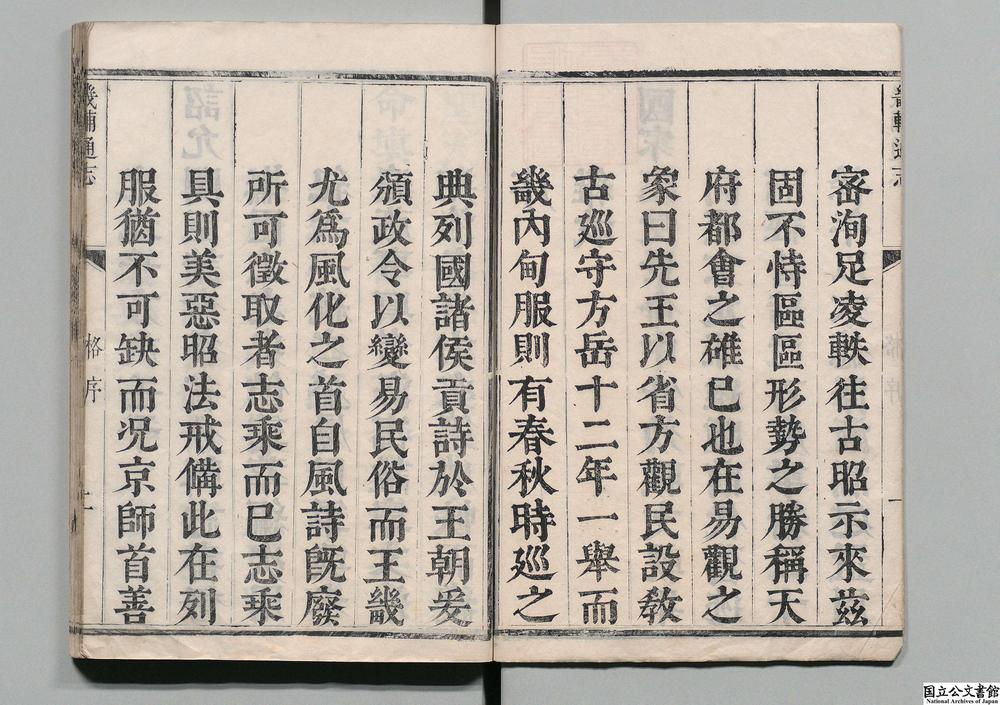 密洵足凌軼往古昭示來茲
固不恃區區形勢之勝稱天
府都會之雄已也在易觀之
象曰先王以省方觀民設教
古巡守方岳十二年一舉而
畿內甸服則有春秋時巡之
典列國諸侯貢詩於王朝爰
頒政令以變易民俗而王畿
尤爲風化之首自風詩既廢
所可徵取者志乘而已志乘
具則美惡昭法戒備此在列
服猶不可缺而况京師首善
畿輔通志
格序
二
国立公文書館
National Archives of Japan